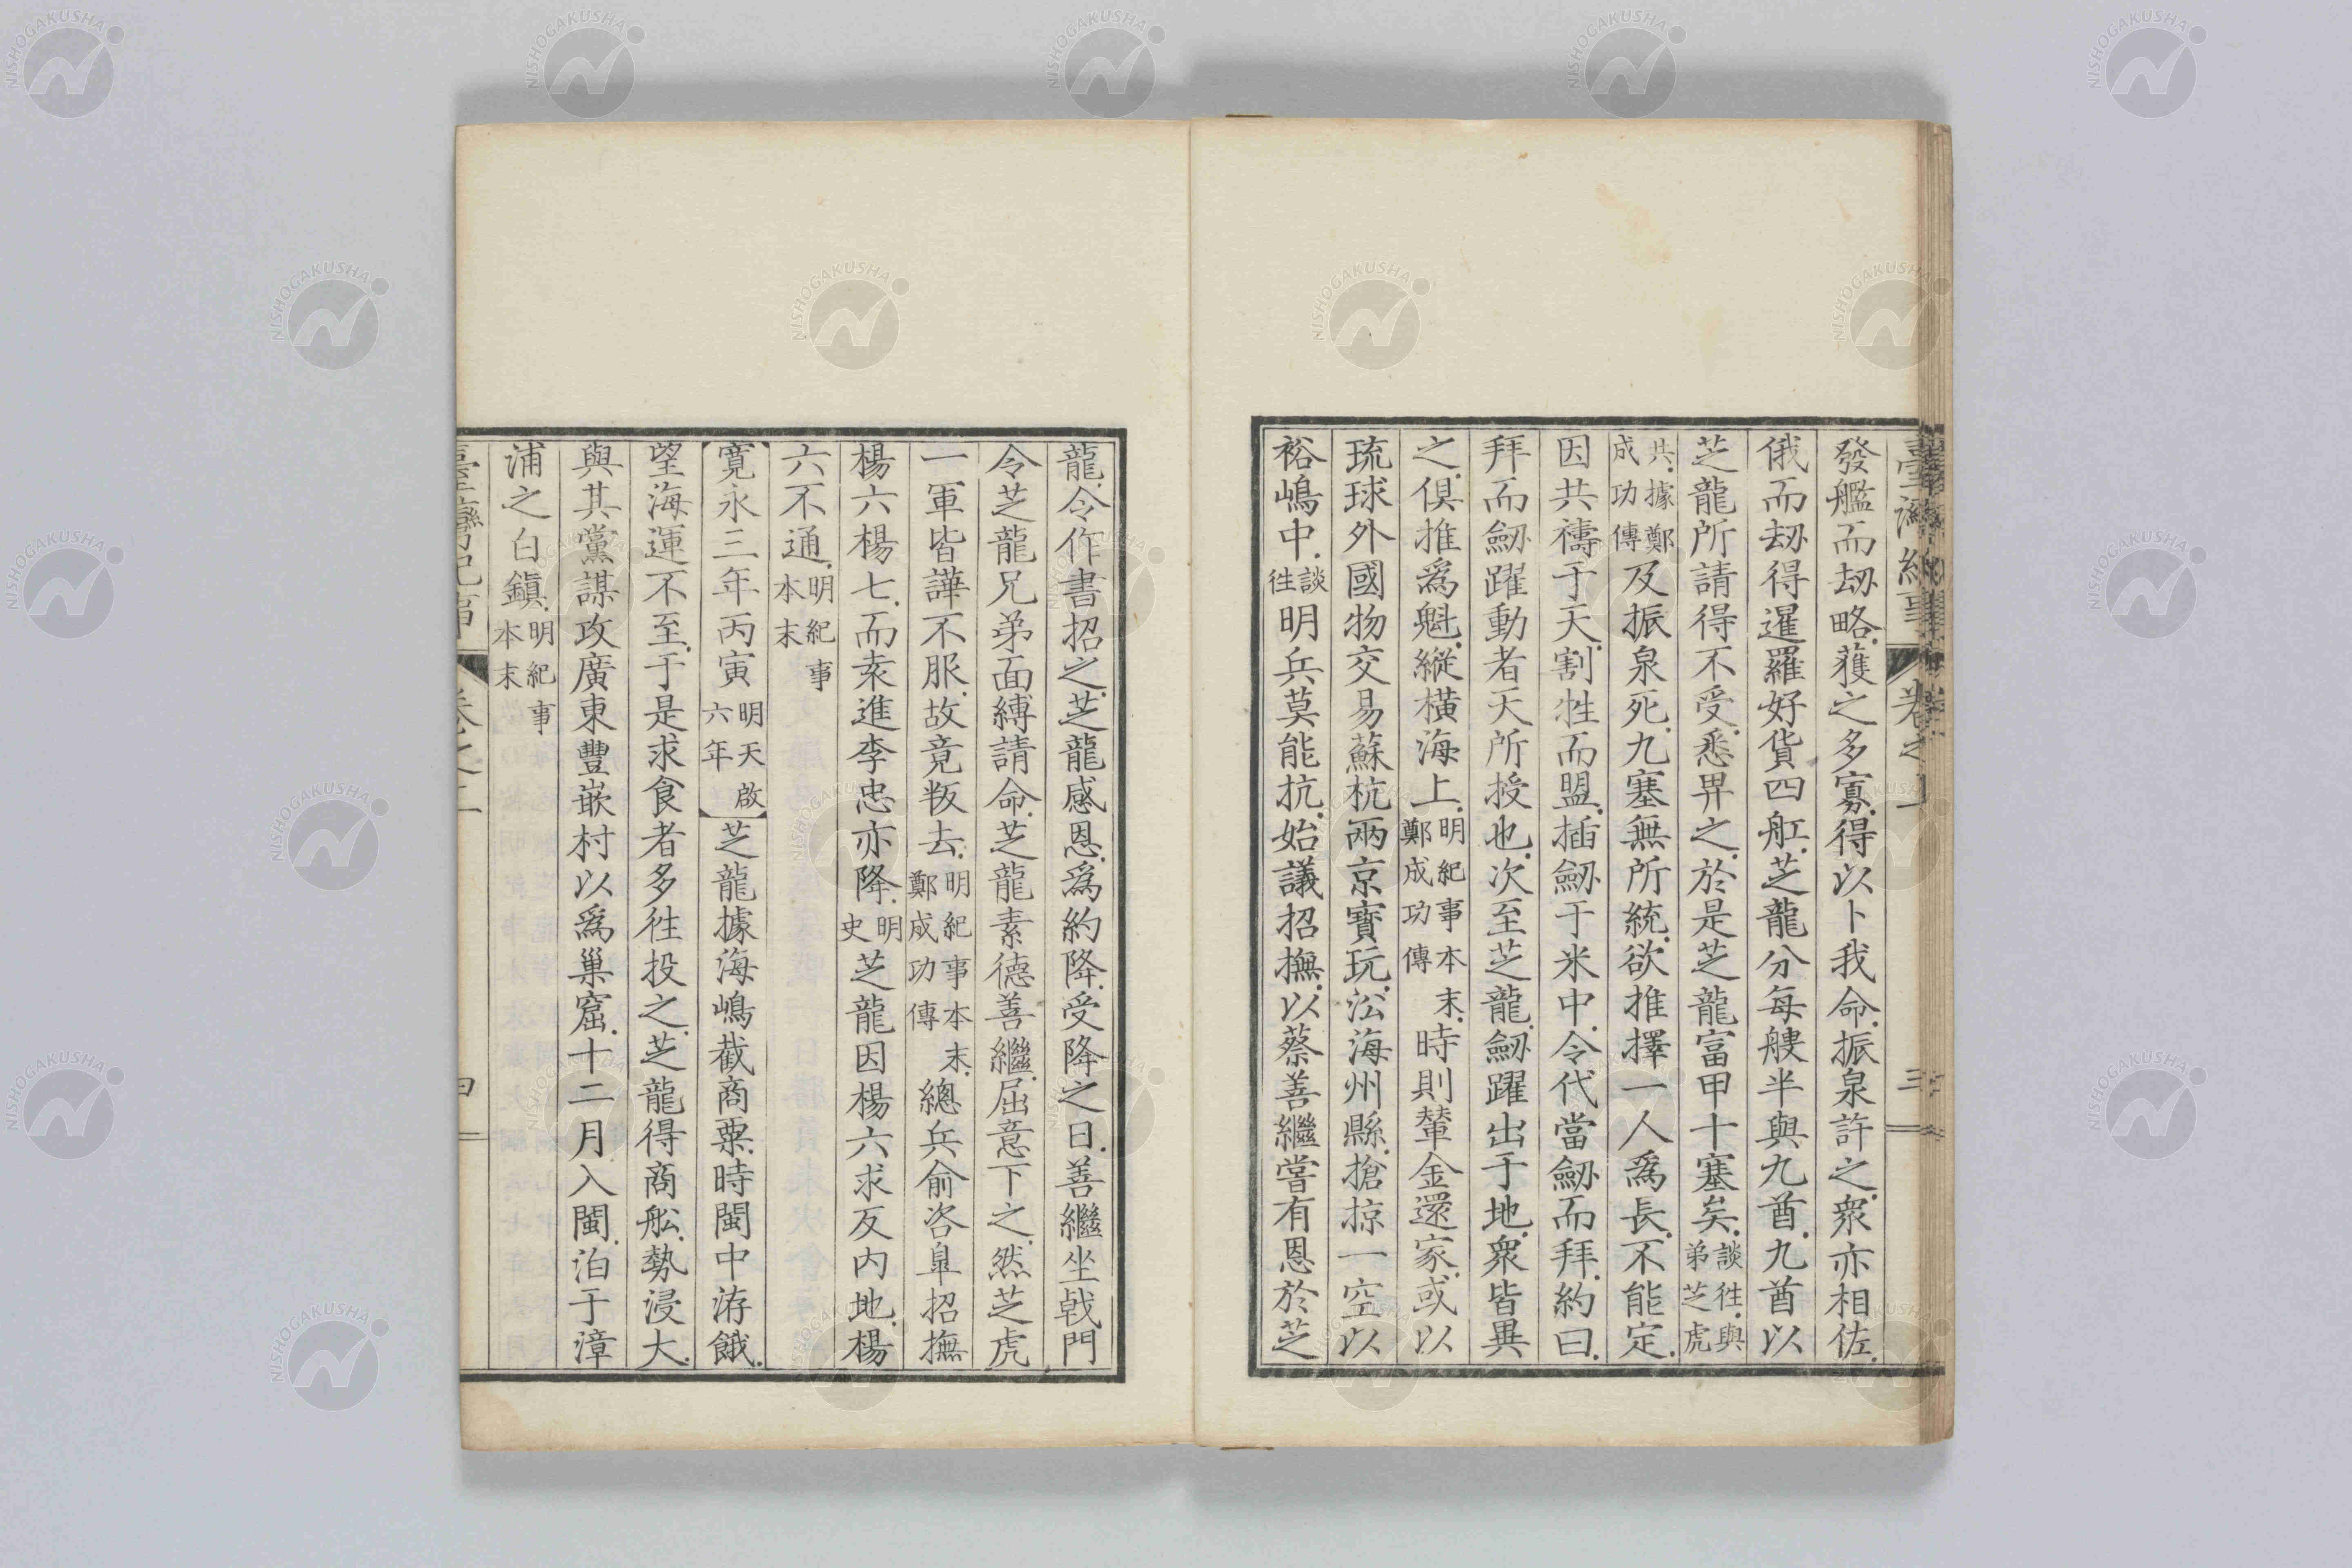 臺灣紀事 卷之一 三
發艦而刼略獲之多寡得以卜我命振泉許之衆亦相佐
俄而刼得暹羅好貨四舡芝龍分每艘半與九酋九酋以
芝龍所請得不受悉畀之於是芝龍富甲十塞矣談往與弟芝虎
共據鄭成功傳及振泉死九塞無所統欲推擇一人爲長不能定
因共禱于天割牲而盟插劒于米中令代當劒而拜約曰
拜而劒躍動者天所授也次至芝龍劒躍出于地衆皆異
之俱推爲魁縱横海上明紀事本末鄭成功傳時則輦金還家或以
琉球外國物交易蘇杭兩京寳玩㳂海州縣搶掠一空以
裕嶋中談往明兵莫能抗始議招撫以蔡善繼嘗有恩於芝
龍令作書招之芝龍感恩爲約降受降之日善繼坐戟門
令芝龍兄弟面縛請命芝龍素德善繼屈意下之然芝虎
一軍皆譁不服故竟叛去明紀事本末鄭成功傳總兵俞咨皐招撫
楊六楊七而袁進李忠亦降明史芝龍因楊六求反内地楊
六不通明紀事本末
寛永三年丙寅明天啟六年芝龍據海嶋截商粟時閩中洊餓
望海運不至于是求食者多徃投之芝龍得商舩勢浸大
與其黨謀攻廣東豐嵌村以爲巢窟十二月入閩泊于漳
浦之白鎭明紀事本末
NISHOGAKUSHA